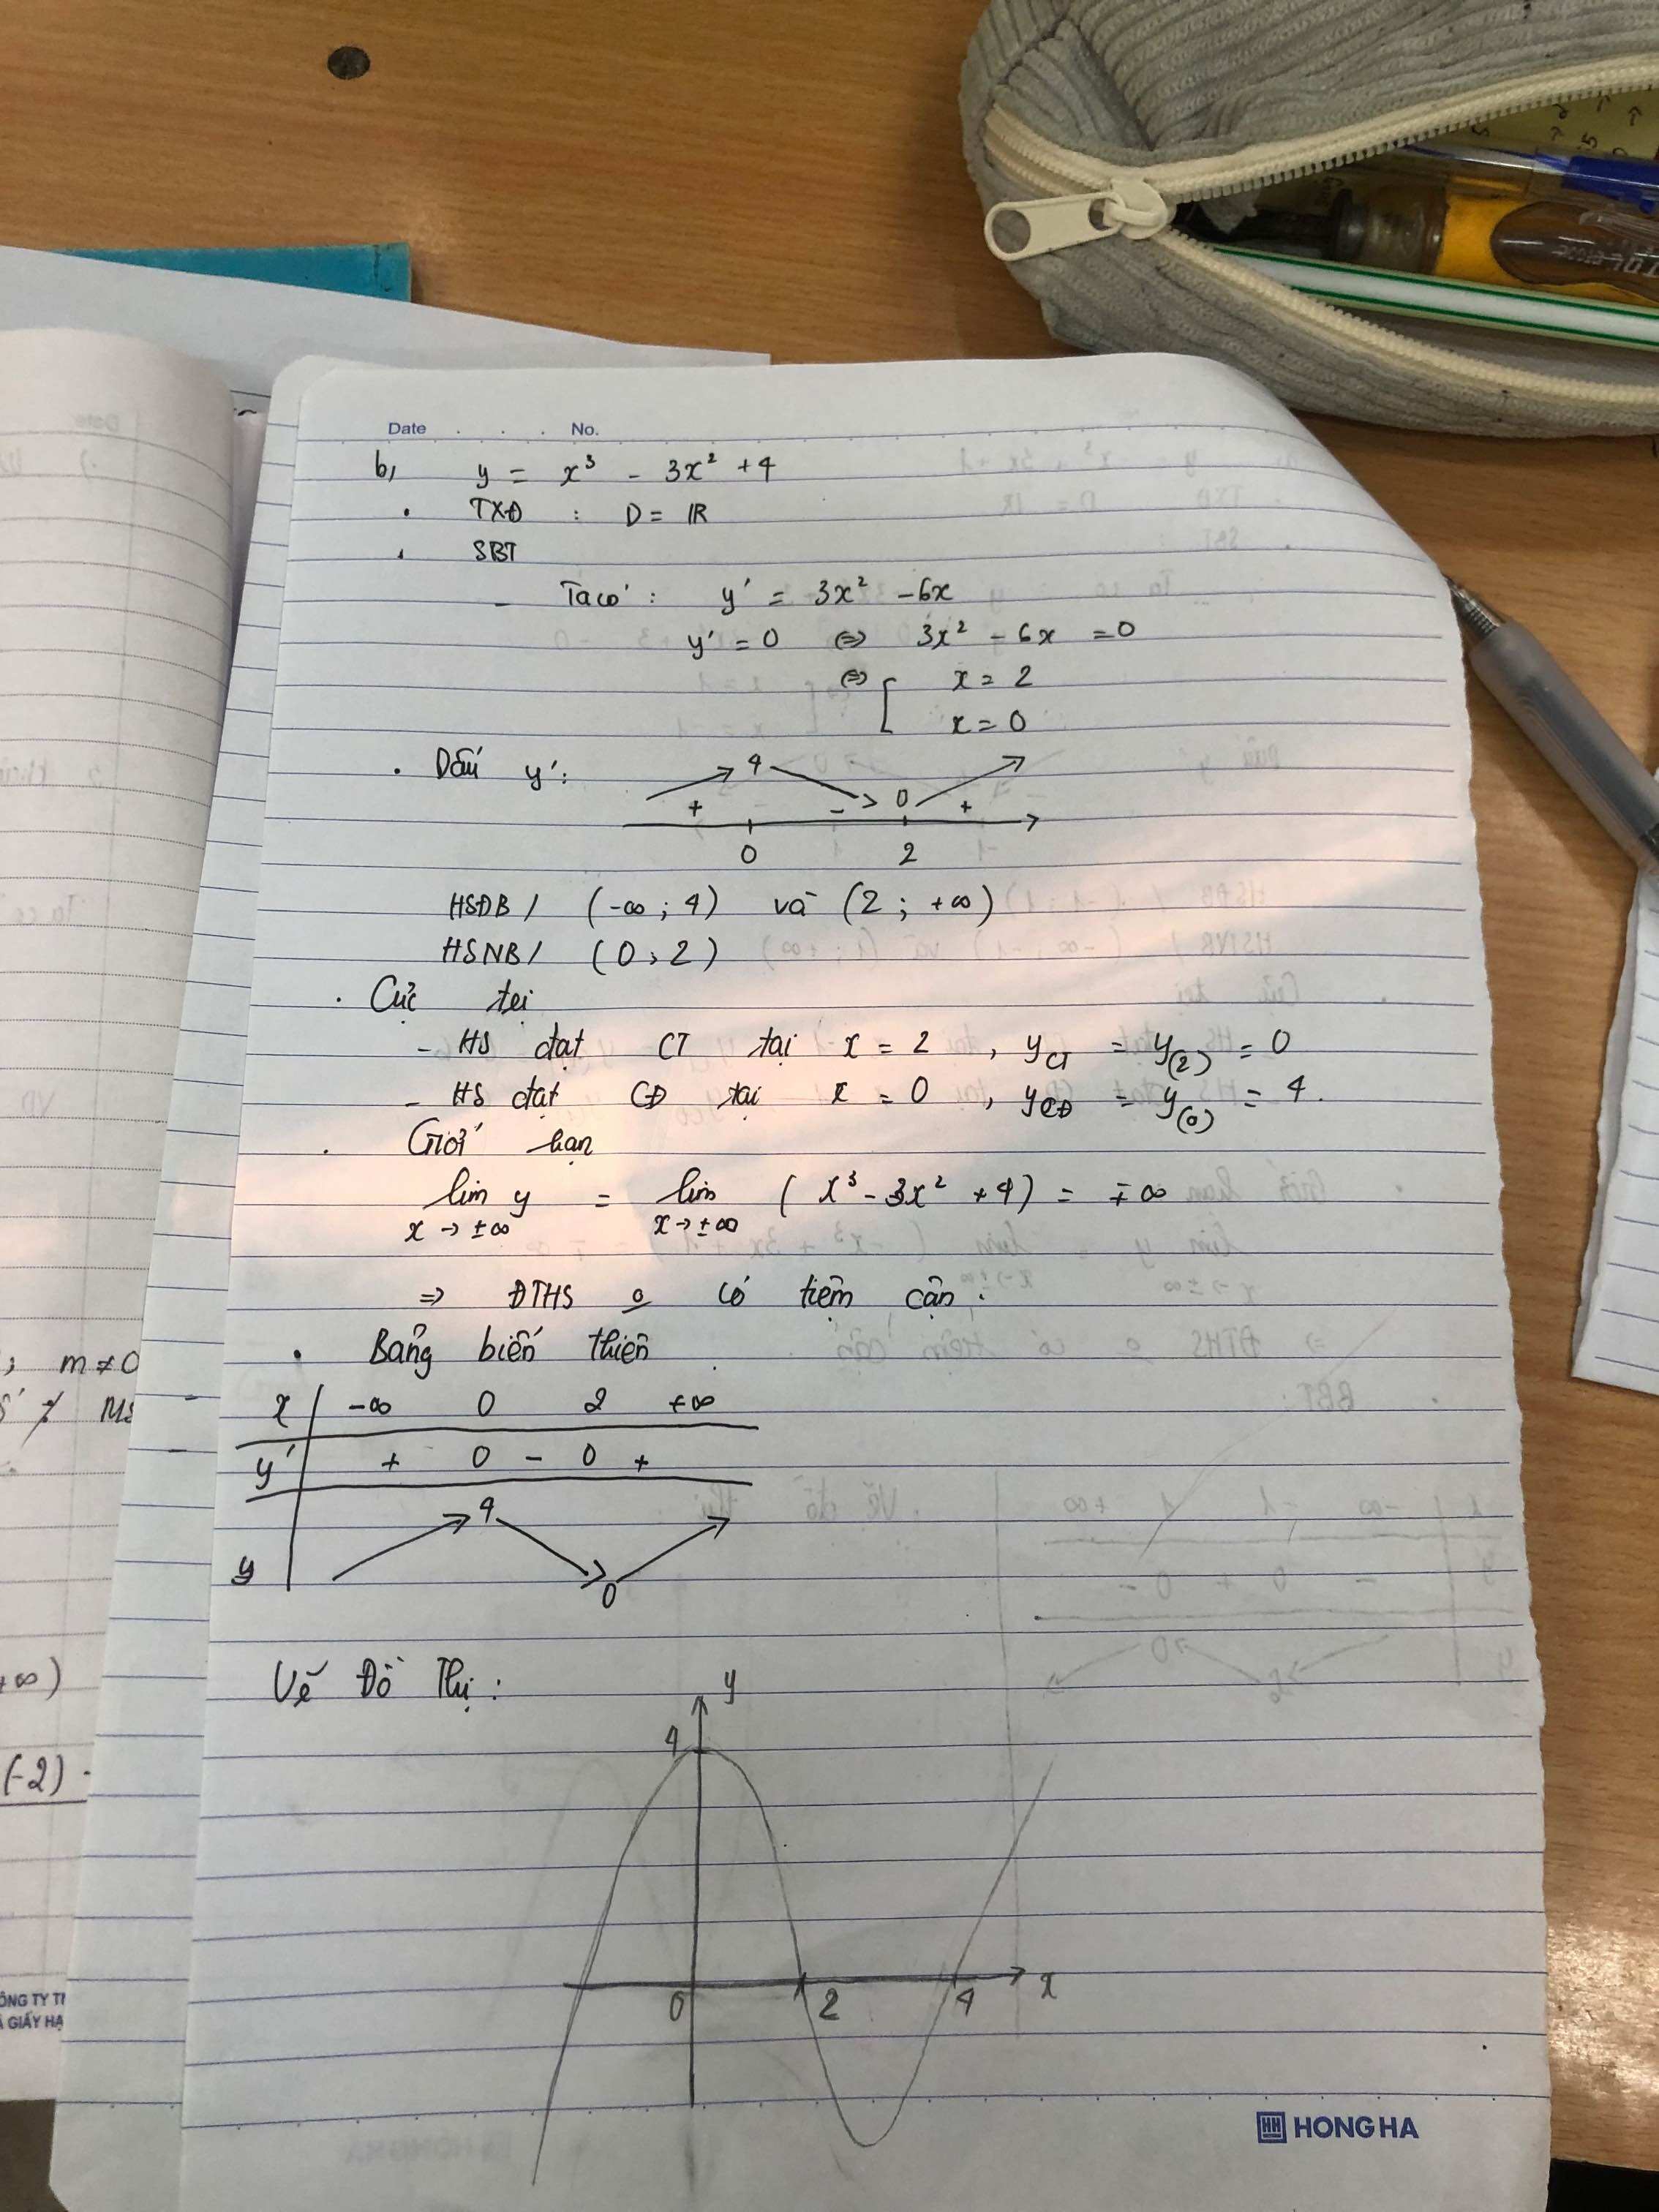 Date . . . No.
b, y = x³ - 3x² + 4
. TXĐ : D = ℝ
. SBT
- Ta có : y' = 3x² - 6x
y' = 0 ⇔ 3x² - 6x = 0
⇔ [ x = 2
x = 0
. Dấu y' :
4
+ - 0 +
0 2
HSĐB / (-∞ ; 4) và (2 ; +∞)
HSNB / (0 ; 2)
. Cực trị
- HS đạt CT tại x = 2 , y_CT = y_(2) = 0
- HS đạt CĐ tại x = 0 , y_CĐ = y_(0) = 4 .
. Giới hạn
lim y = lim ( x³ - 3x² + 4 ) = ∓∞
x → ±∞ x → ±∞
⇒ ĐTHS o có tiệm cận .
. Bảng biến thiên
x -∞ 0 2 +∞
y' + 0 - 0 +
4
y
0
Vẽ Đồ Thị :
y
4
0 2 4 x
HH HONG HA
; m ≠ 0
+∞)
(-2) .
ÔNG TY TN
GIẤY HẠ